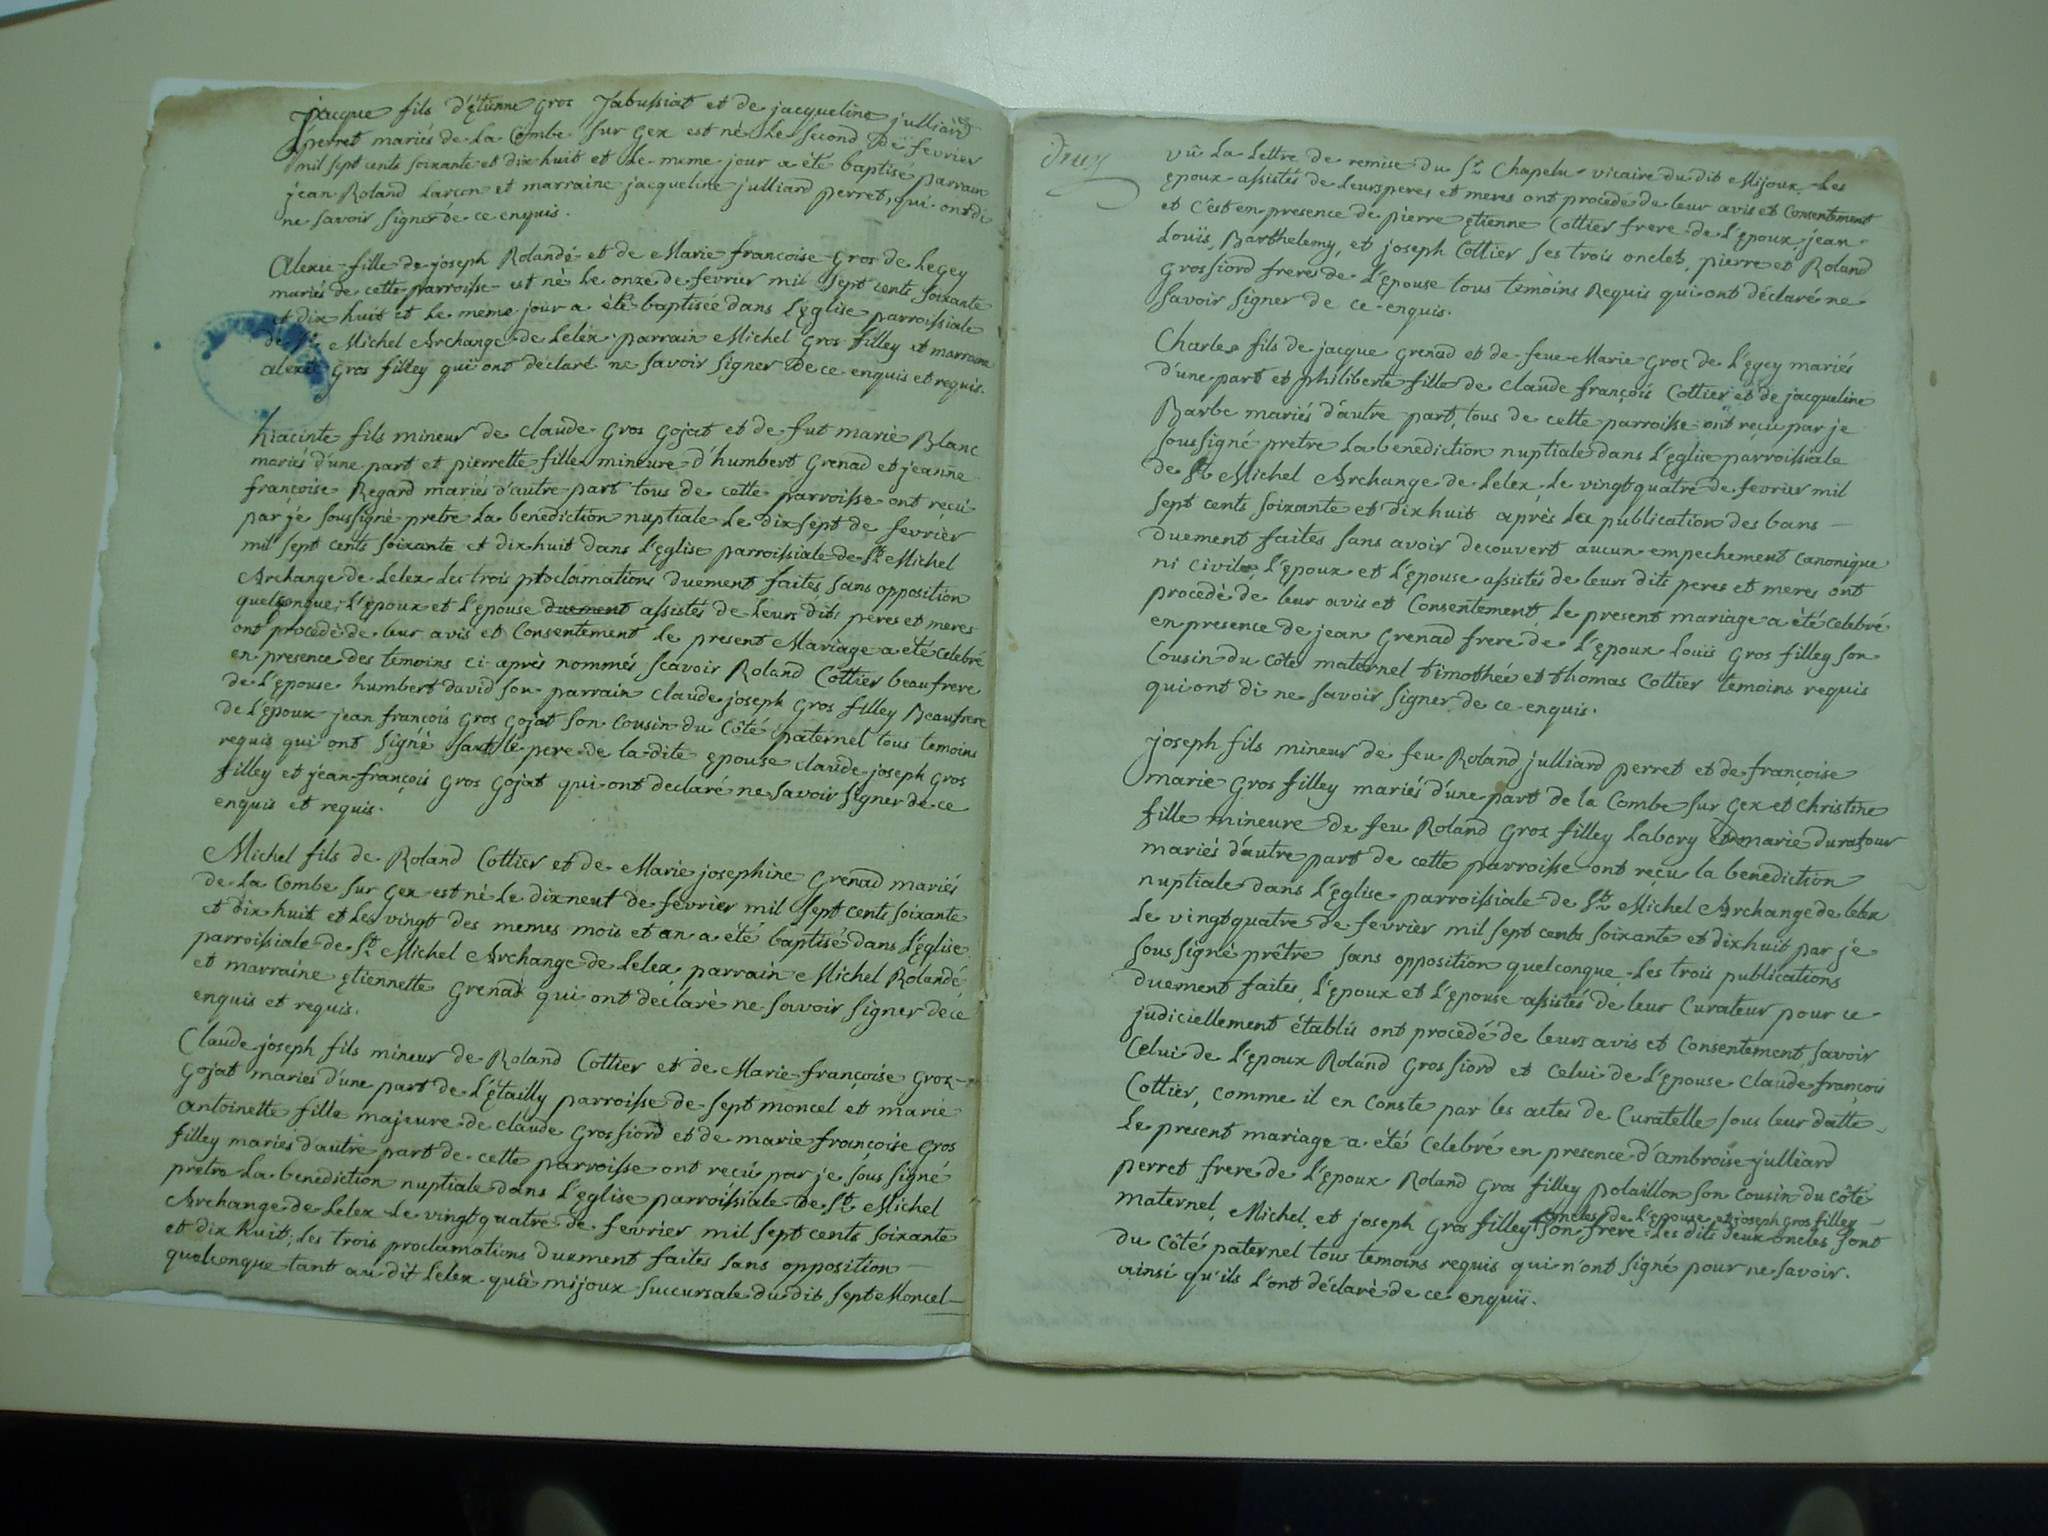 jacque fils d'étienne gros Jabussiat et de jacqueline julliard
perret mariés de la Combe sur gex est né le second de fevrier
mil sept cents soixante et dix huit et le meme jour a été baptisé parrain
jean Roland Larçon et marraine jacqueline julliard perret, qui ont di
ne savoir signer de ce enquis.
Alexie fille de joseph Rolandé et de Marie francoise gros de Legey
mariés de cette parroisse est né le onze de fevrier mil sept cents soixante
et dix huit et le meme jour a été baptisée dans l'église parroissiale
de St Michel Archange de Lelex parrain Michel gros filley et marraine
alexie gros filley qui ont declaré ne savoir signer de ce enquis et requis.
hiacinte fils mineur de claude gros gojat et de fut marie Blanc
mariés d'une part et pierrette fille mineure d'humbert grenad et jeanne
françoise Regard mariés d'autre part tous de cette parroisse ont reçu
par je soussigné pretre la benediction nuptiale le dix sept de fevrier
mil sept cents soixante et dix huit dans l'église parroissiale de St Michel
Archange de Lelex les trois proclamations duement faites sans opposition
quelconque; l'époux et l'épouse duement assistés de leurs dits peres et meres
ont procédé de leur avis et Consentement le present Mariage a été celebré
en presence des temoins ci après nommés scavoir Roland Cottier beaufrere
de l'épouse humbert david son parrain claude joseph gros filley Beaufrere
de l'époux jean françois gros gojat son cousin du côté paternel tous temoins
requis qui ont signé sauf le pere de la dite epouse claude joseph gros
filley et jean françois gros gojat qui ont declaré ne savoir signer de ce
enquis et requis.
Michel fils de Roland Cottier et de Marie josephine grenad mariés
de la Combe sur gex est né le dix neuf de fevrier mil sept cents soixante
et dix huit et les vingt des memes mois et an a été baptisé dans l'église
parroissiale de St Michel Archange de Lelex parrain Michel Rolandé
et marraine étiennette grenad qui ont déclaré ne savoir signer de ce
enquis et requis.
Claude joseph fils mineur de Roland Cottier et de Marie françoise gros
gojat mariés d'une part de l'étailly parroisse de sept moncel et marie
antoinette fille majeure de claude grossiord et de marie françoise gros
filley mariés d'autre part de cette parroisse ont reçu par je sous signé
pretre la benediction nuptiale dans l'église parroissiale de St Michel
Archange de Lelex le vingt quatre de fevrier mil sept cents soixante
et dix huit; les trois proclamations duement faites sans opposition
quelconque tant au dit Lelex qu'à mijoux succursale du dit Sept Moncel
deux
vû la lettre de remise du Sr Chapelu vicaire du dit Mijoux les
époux assistés de leurs peres et meres ont procédé de leur avis et Consentement
et c'est en presence de pierre étienne Cottier frere de l'époux jean
Louïs, Barthelemy, et joseph Cottier ses trois oncles, pierre et Roland
grossiord freres de l'épouse tous témoins Requis qui ont déclaré ne
savoir signer de ce enquis.
Charles fils de jacque grenad et de feue Marie gros de L'égey mariés
d'une part et philiberte fille de claude françois Cottier et de jacqueline
Barbe mariés d'autre part, tous de cette parroisse ont reçu par je
soussigné pretre la benediction nuptiale dans l'église parroissiale
de St Michel Archange de Lelex le vingt quatre de fevrier mil
sept cents soixante et dix huit après les publication des bans
duement faites sans avoir decouvert aucun empechement canonique
ni civile, l'époux et l'épouse assistés de leurs dits peres et meres ont
procédé de leur avis et Consentement, le present mariage a été celebré
en presence de jean grenad frere de l'époux Louis gros filley son
cousin du côté maternel timothée et thomas Cottier temoins requis
qui ont di ne savoir signer de ce enquis.
joseph fils mineur de feu Roland julliard perret et de françoise
marie gros filley mariés d'une part de la Combe sur gex et christine
fille mineure de feu Roland gros filley Labory et marie durafour
mariés d'autre part de cette parroisse ont reçu la benediction
nuptiale dans l'église parroissiale de St Michel Archange de lelex
le vingt quatre de fevrier mil sept cents soixante et dix huit par je
sous signé prêtre sans opposition quelconque les trois publications
duement faites, l'époux et l'épouse assistés de leur Curateur pour ce
judiciellement établis ont procédé de leurs avis et Consentement savoir
Celui de l'époux Roland grossiord et celui de l'épouse claude françois
Cottier, comme il en conste par les actes de Curatelle sous leur datte
le present mariage a été celebré en presence d'ambroise julliard
perret frere de l'époux Roland gros filley polaillon son cousin du côté
maternel, Michel, et joseph gros filley oncles de l'épouse et joseph gros filley
son frere les dits deux oncles sont
du côté paternel tous temoins requis qui n'ont signé pour ne savoir.
ainsi qu'ils l'ont déclaré de ce enquis.